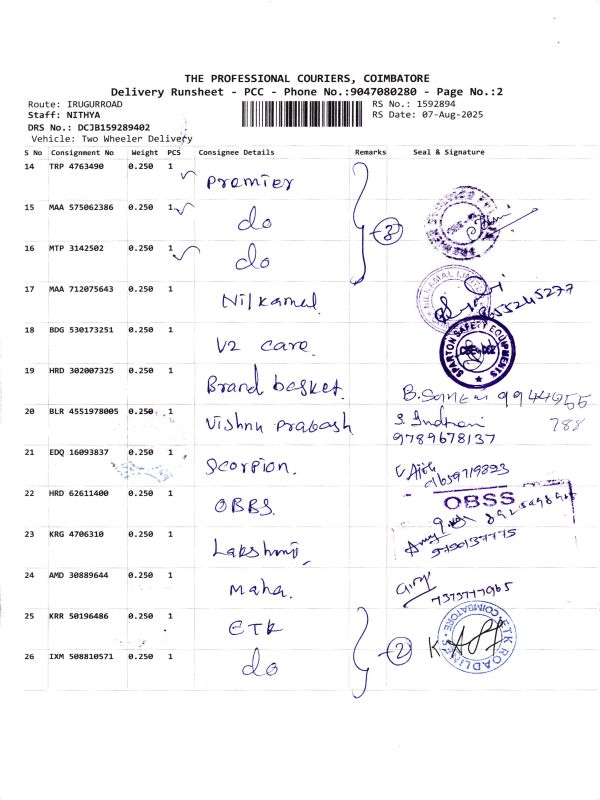 THE PROFESSIONAL COURIERS, COIMBATORE
Delivery Runsheet - PCC - Phone No.:9047080280 - Page No.:2
Route: IRUGURROAD
Staff: NITHYA
DRS No.: DCJB159289402
Vehicle: Two Wheeler Delivery
RS No.: 1592894
RS Date: 07-Aug-2025
S No Consignment No Weight PCS Consignee Details Remarks Seal & Signature
14 TRP 4763490 0.250 1 Premier
15 MAA 575062386 0.250 1 do -3
16 MTP 3142502 0.250 1 do
17 MAA 712075643 0.250 1 Nilkamal
18 BDG 530173251 0.250 1 V2 care. SPANTON SAFETY EQUIPMENTS
19 HRD 302007325 0.250 1 Brand basket. 9944655
788
20 BLR 4551978005 0.250 1 Vishnu Prabash S. Indhrani
9789678137
21 EDQ 16093837 0.250 1 Scorpion.
22 HRD 62611400 0.250 1 OBBS. OBSS
23 KRG 4706310 0.250 1 Lakshmi.
24 AMD 30889644 0.250 1 Maha.
25 KRR 50196486 0.250 1 ETK -2 ETK ROADLINE COIMBATORE
26 IXM 508810571 0.250 1 do